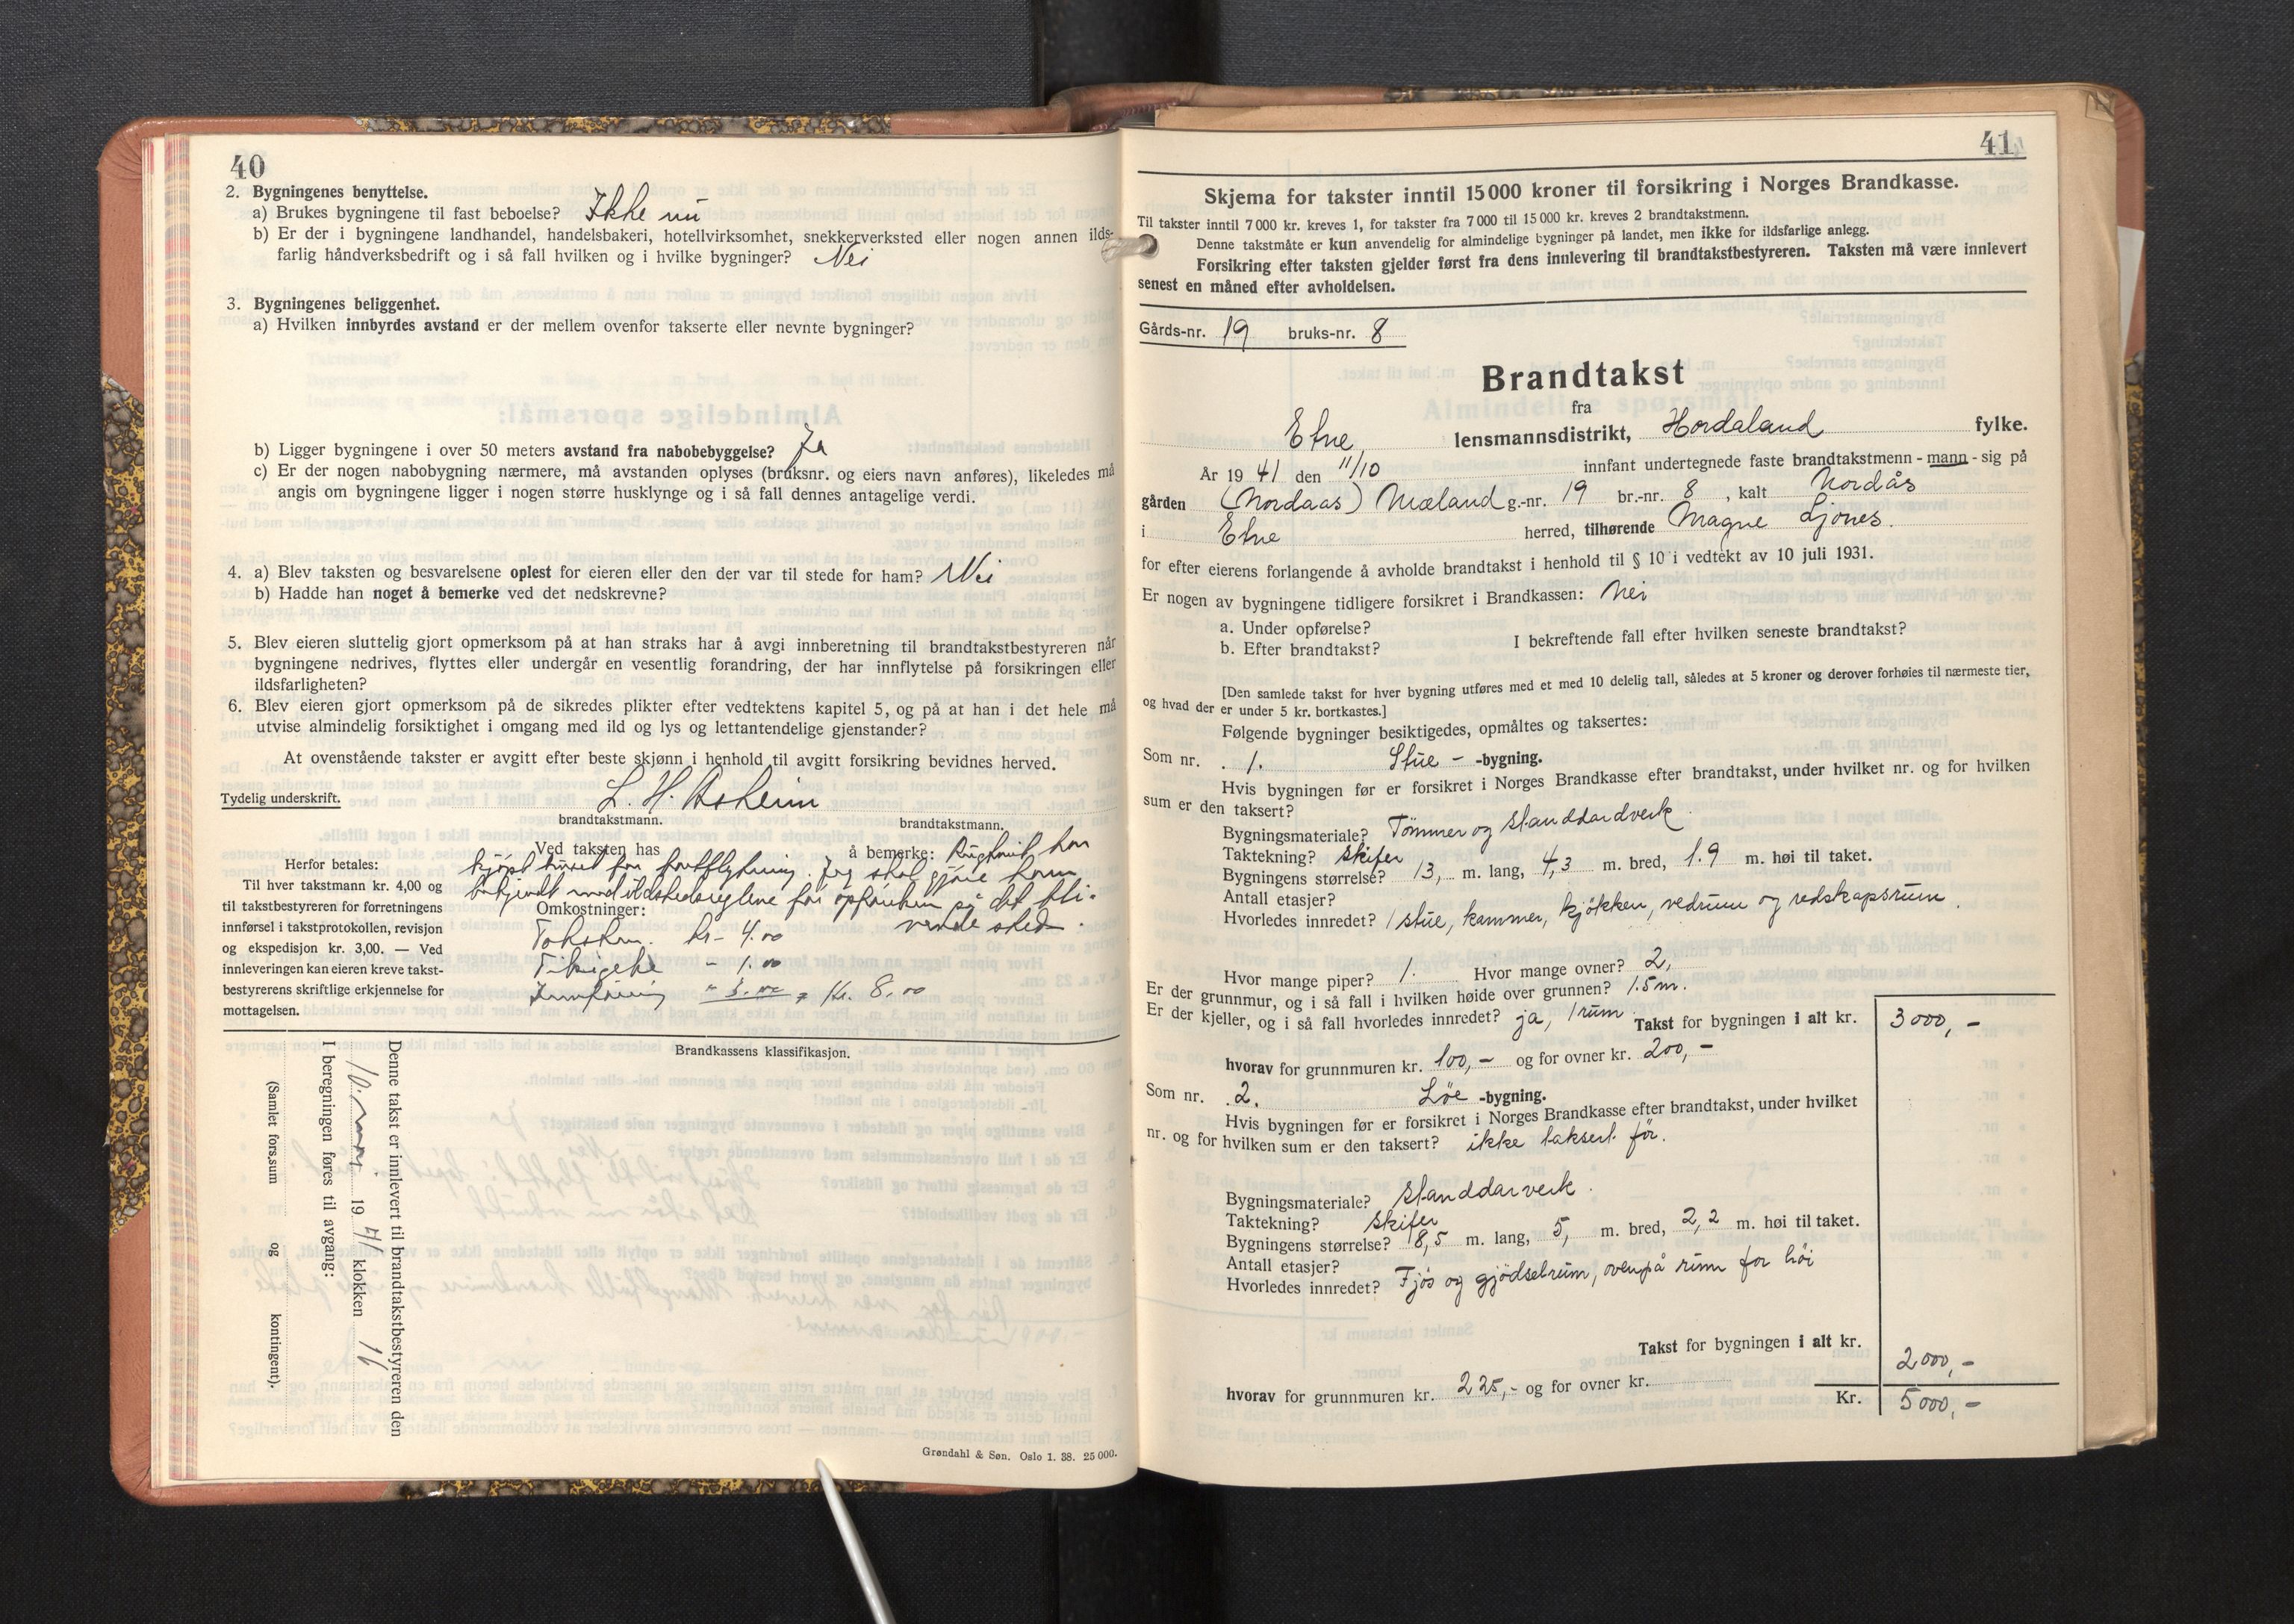 40
2. Bygningenes benyttelse.
a) Brukes bygningene til fast beboelse? Ikke nu
b) Er der i bygningene landhandel, handelsbakeri, hotellvirksomhet, snekkerverksted eller nogen annen ilds-
farlig håndverksbedrift og i så fall hvilken og i hvilke bygninger? Nei
3. Bygningenes beliggenhet.
a) Hvilken innbyrdes avstand er der mellem ovenfor takserte eller nevnte bygninger?
b) Ligger bygningene i over 50 meters avstand fra nabobebyggelse? Ja
c) Er der nogen nabobygning nærmere, må avstanden oplyses (bruksnr. og eiers navn anføres), likeledes må
angis om bygningene ligger i nogen større husklynge og i så fall dennes antagelige verdi.
4. a) Blev taksten og besvarelsene oplest for eieren eller den der var til stede for ham? Nei
b) Hadde han noget å bemerke ved det nedskrevne?
5. Blev eieren sluttelig gjort opmerksom på at han straks har å avgi innberetning til brandtakstbestyreren når
bygningene nedrives, flyttes eller undergår en vesentlig forandring, der har innflytelse på forsikringen eller
ildsfarligheten?
6. Blev eieren gjort opmerksom på de sikredes plikter efter vedtektens kapitel 5, og på at han i det hele må
utvise almindelig forsiktighet i omgang med ild og lys og lettantendelige gjenstander?
At ovenstående takster er avgitt efter beste skjønn i henhold til avgitt forsikring bevidnes herved.
Tydelig underskrift. L. H. Åsheim
brandtakstmann. brandtakstmann.
Ved taksten has å bemerke: har
kjøpt huset for fraflytning. Jeg skal gjøre ham
bekjendt med ildstedsreglene før opførelsen på det bli-
vende sted.
Herfor betales:
Til hver takstmann kr. 4,00 og
til takstbestyreren for forretningens
innførsel i takstprotokollen, revisjon
og ekspedisjon kr. 3,00. — Ved
innleveringen kan eieren kreve takst-
bestyrerens skriftlige erkjennelse for
mottagelsen.
Omkostninger:
kr - 4.00
- 1.00
Innføring " 3.00 = Kr. 8.00
Brandkassens klassifikasjon.
Denne takst er innlevert til brandtakstbestyreren den
10. mai 1941 klokken 16
I beregningen føres til avgang:
(Samlet fors.sum og kontingent).
Grøndahl & Søn. Oslo 1. 38. 25 000.
41
Skjema for takster inntil 15 000 kroner til forsikring i Norges Brandkasse.
Til takster inntil 7 000 kr. kreves 1, for takster fra 7 000 til 15 000 kr. kreves 2 brandtakstmenn.
Denne takstmåte er kun anvendelig for almindelige bygninger på landet, men ikke for ildsfarlige anlegg.
Forsikring efter taksten gjelder først fra dens innlevering til brandtakstbestyreren. Taksten må være innlevert
senest en måned efter avholdelsen.
Gårds-nr. 19 bruks-nr. 8
Brandtakst
fra
Etne lensmannsdistrikt, Hordaland fylke.
År 1941 den 11/10 innfant undertegnede faste brandtakstmenn - mann - sig på
gården (Nordaas) Mæland g.-nr. 19 br.-nr. 8, kalt Nordås
i Etne herred, tilhørende Magne Ljones.
for efter eierens forlangende å avholde brandtakst i henhold til § 10 i vedtekt av 10 juli 1931.
Er nogen av bygningene tidligere forsikret i Brandkassen: Nei
a. Under opførelse?
b. Efter brandtakst? I bekreftende fall efter hvilken seneste brandtakst?
[Den samlede takst for hver bygning utføres med et med 10 delelig tall, således at 5 kroner og derover forhøies til nærmeste tier,
og hvad der er under 5 kr. bortkastes.]
Følgende bygninger besiktigedes, opmåltes og taksertes:
Som nr. 1. Stue - -bygning.
Hvis bygningen før er forsikret i Norges Brandkasse efter brandtakst, under hvilket nr. og for hvilken
sum er den taksert?
Bygningsmateriale? Tømmer og standdardverk.
Taktekning? Skifer
Bygningens størrelse? 13, m. lang, 4,3 m. bred, 1.9 m. høi til taket.
Antall etasjer?
Hvorledes innredet? 1 stue, kammer, kjøkken, vedrum og redskapsrum.
Hvor mange piper? 1. Hvor mange ovner? 2,
Er der grunnmur, og i så fall i hvilken høide over grunnen? 1.5 m.
Er der kjeller, og i så fall hvorledes innredet? ja, 1 rum Takst for bygningen i alt kr. 3000,-
hvorav for grunnmuren kr. 100,- og for ovner kr. 200,-
Som nr. 2. Löe -bygning.
Hvis bygningen før er forsikret i Norges Brandkasse efter brandtakst, under hvilket
nr. og for hvilken sum er den taksert? ikke taksert før.
Bygningsmateriale? standdarverk.
Taktekning? Skifer
Bygningens størrelse? 8,5 m. lang, 5, m. bred, 2,2 m. høi til taket.
Antall etasjer?
Hvorledes innredet? Fjös og gjödselrum, ovenpå rum for höi
Takst for bygningen i alt kr. 2000,-
hvorav for grunnmuren kr. 225,- og for ovner kr.
Kr. 5000,-